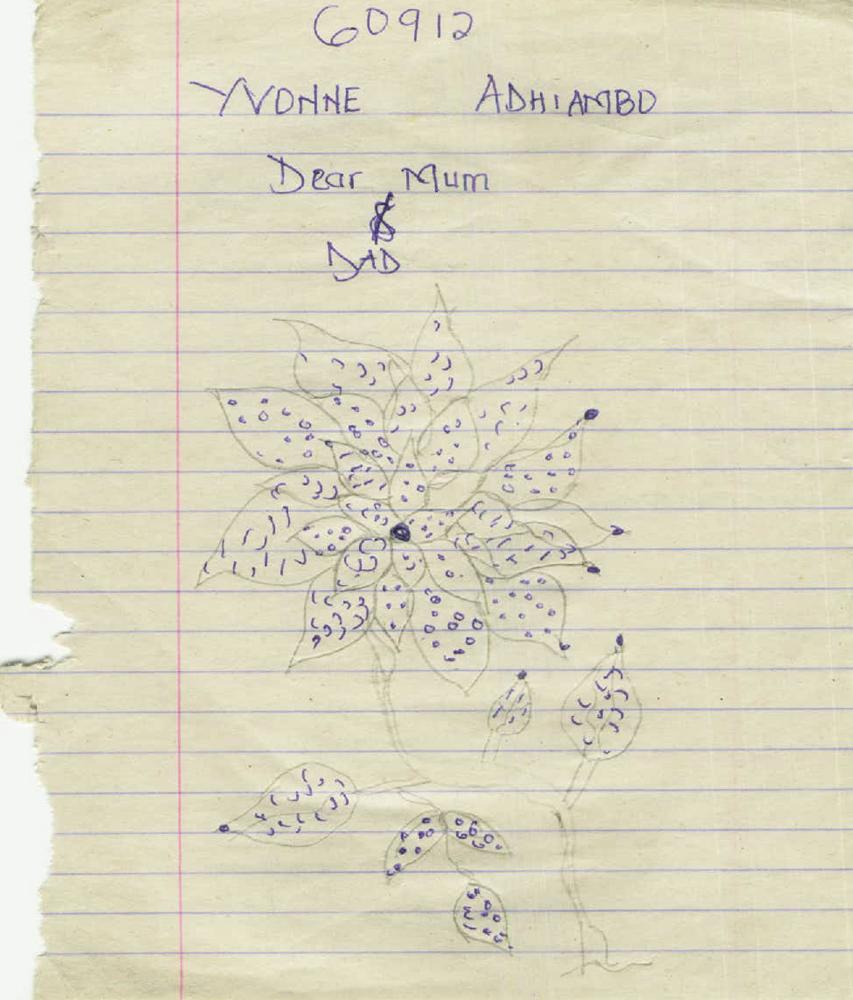 60912
YVONNE ADHIAMBO
Dear Mum
&
DAD